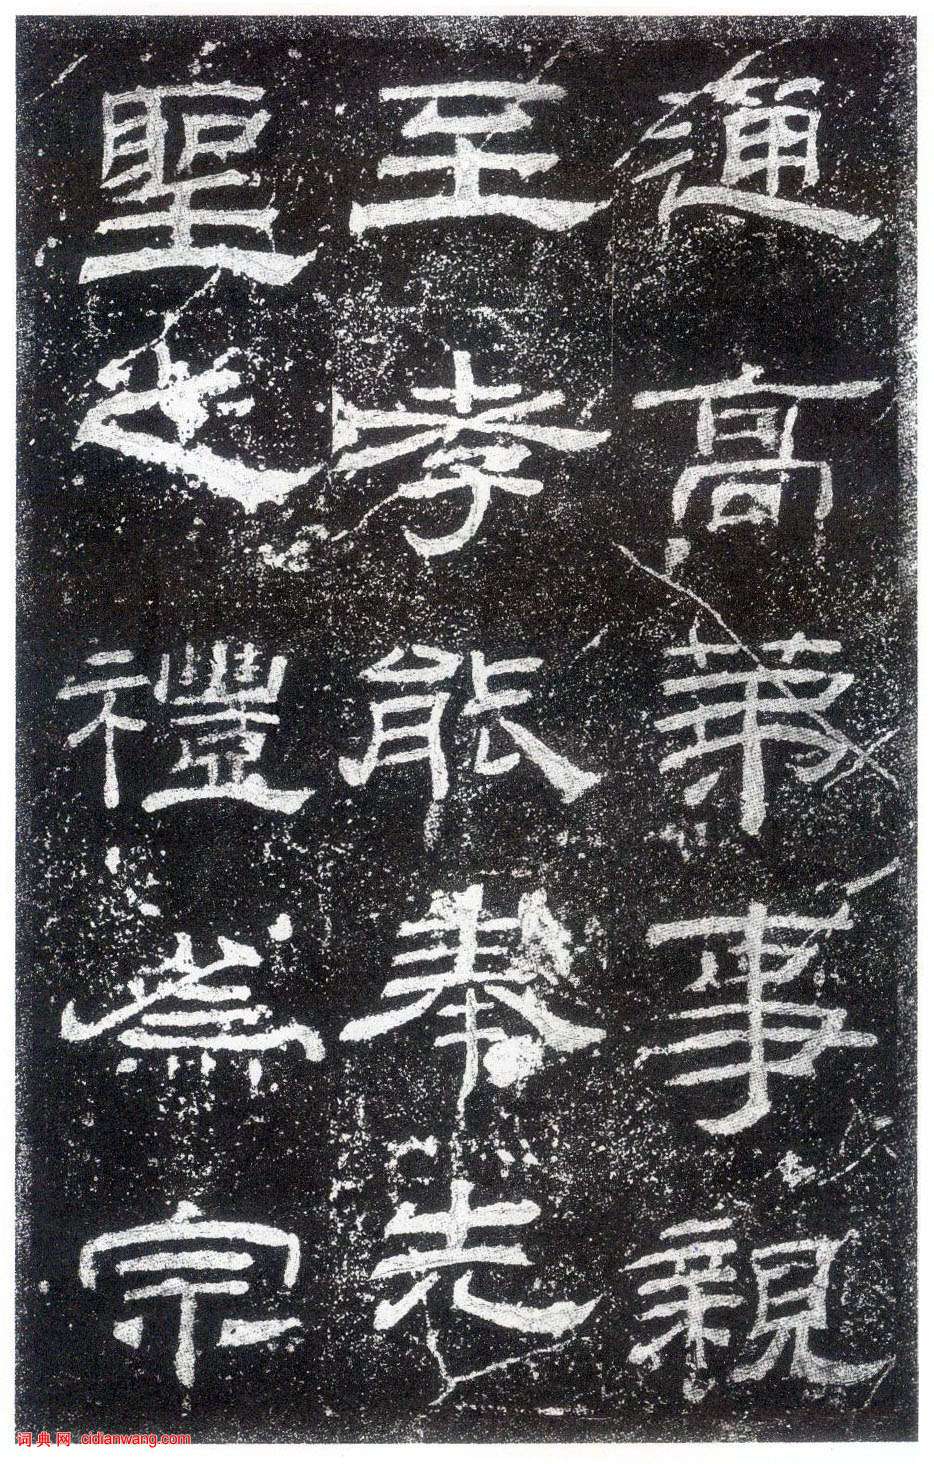 通高第事親
至孝能奉先
聖之禮為宗
词典网 cidianwang.com